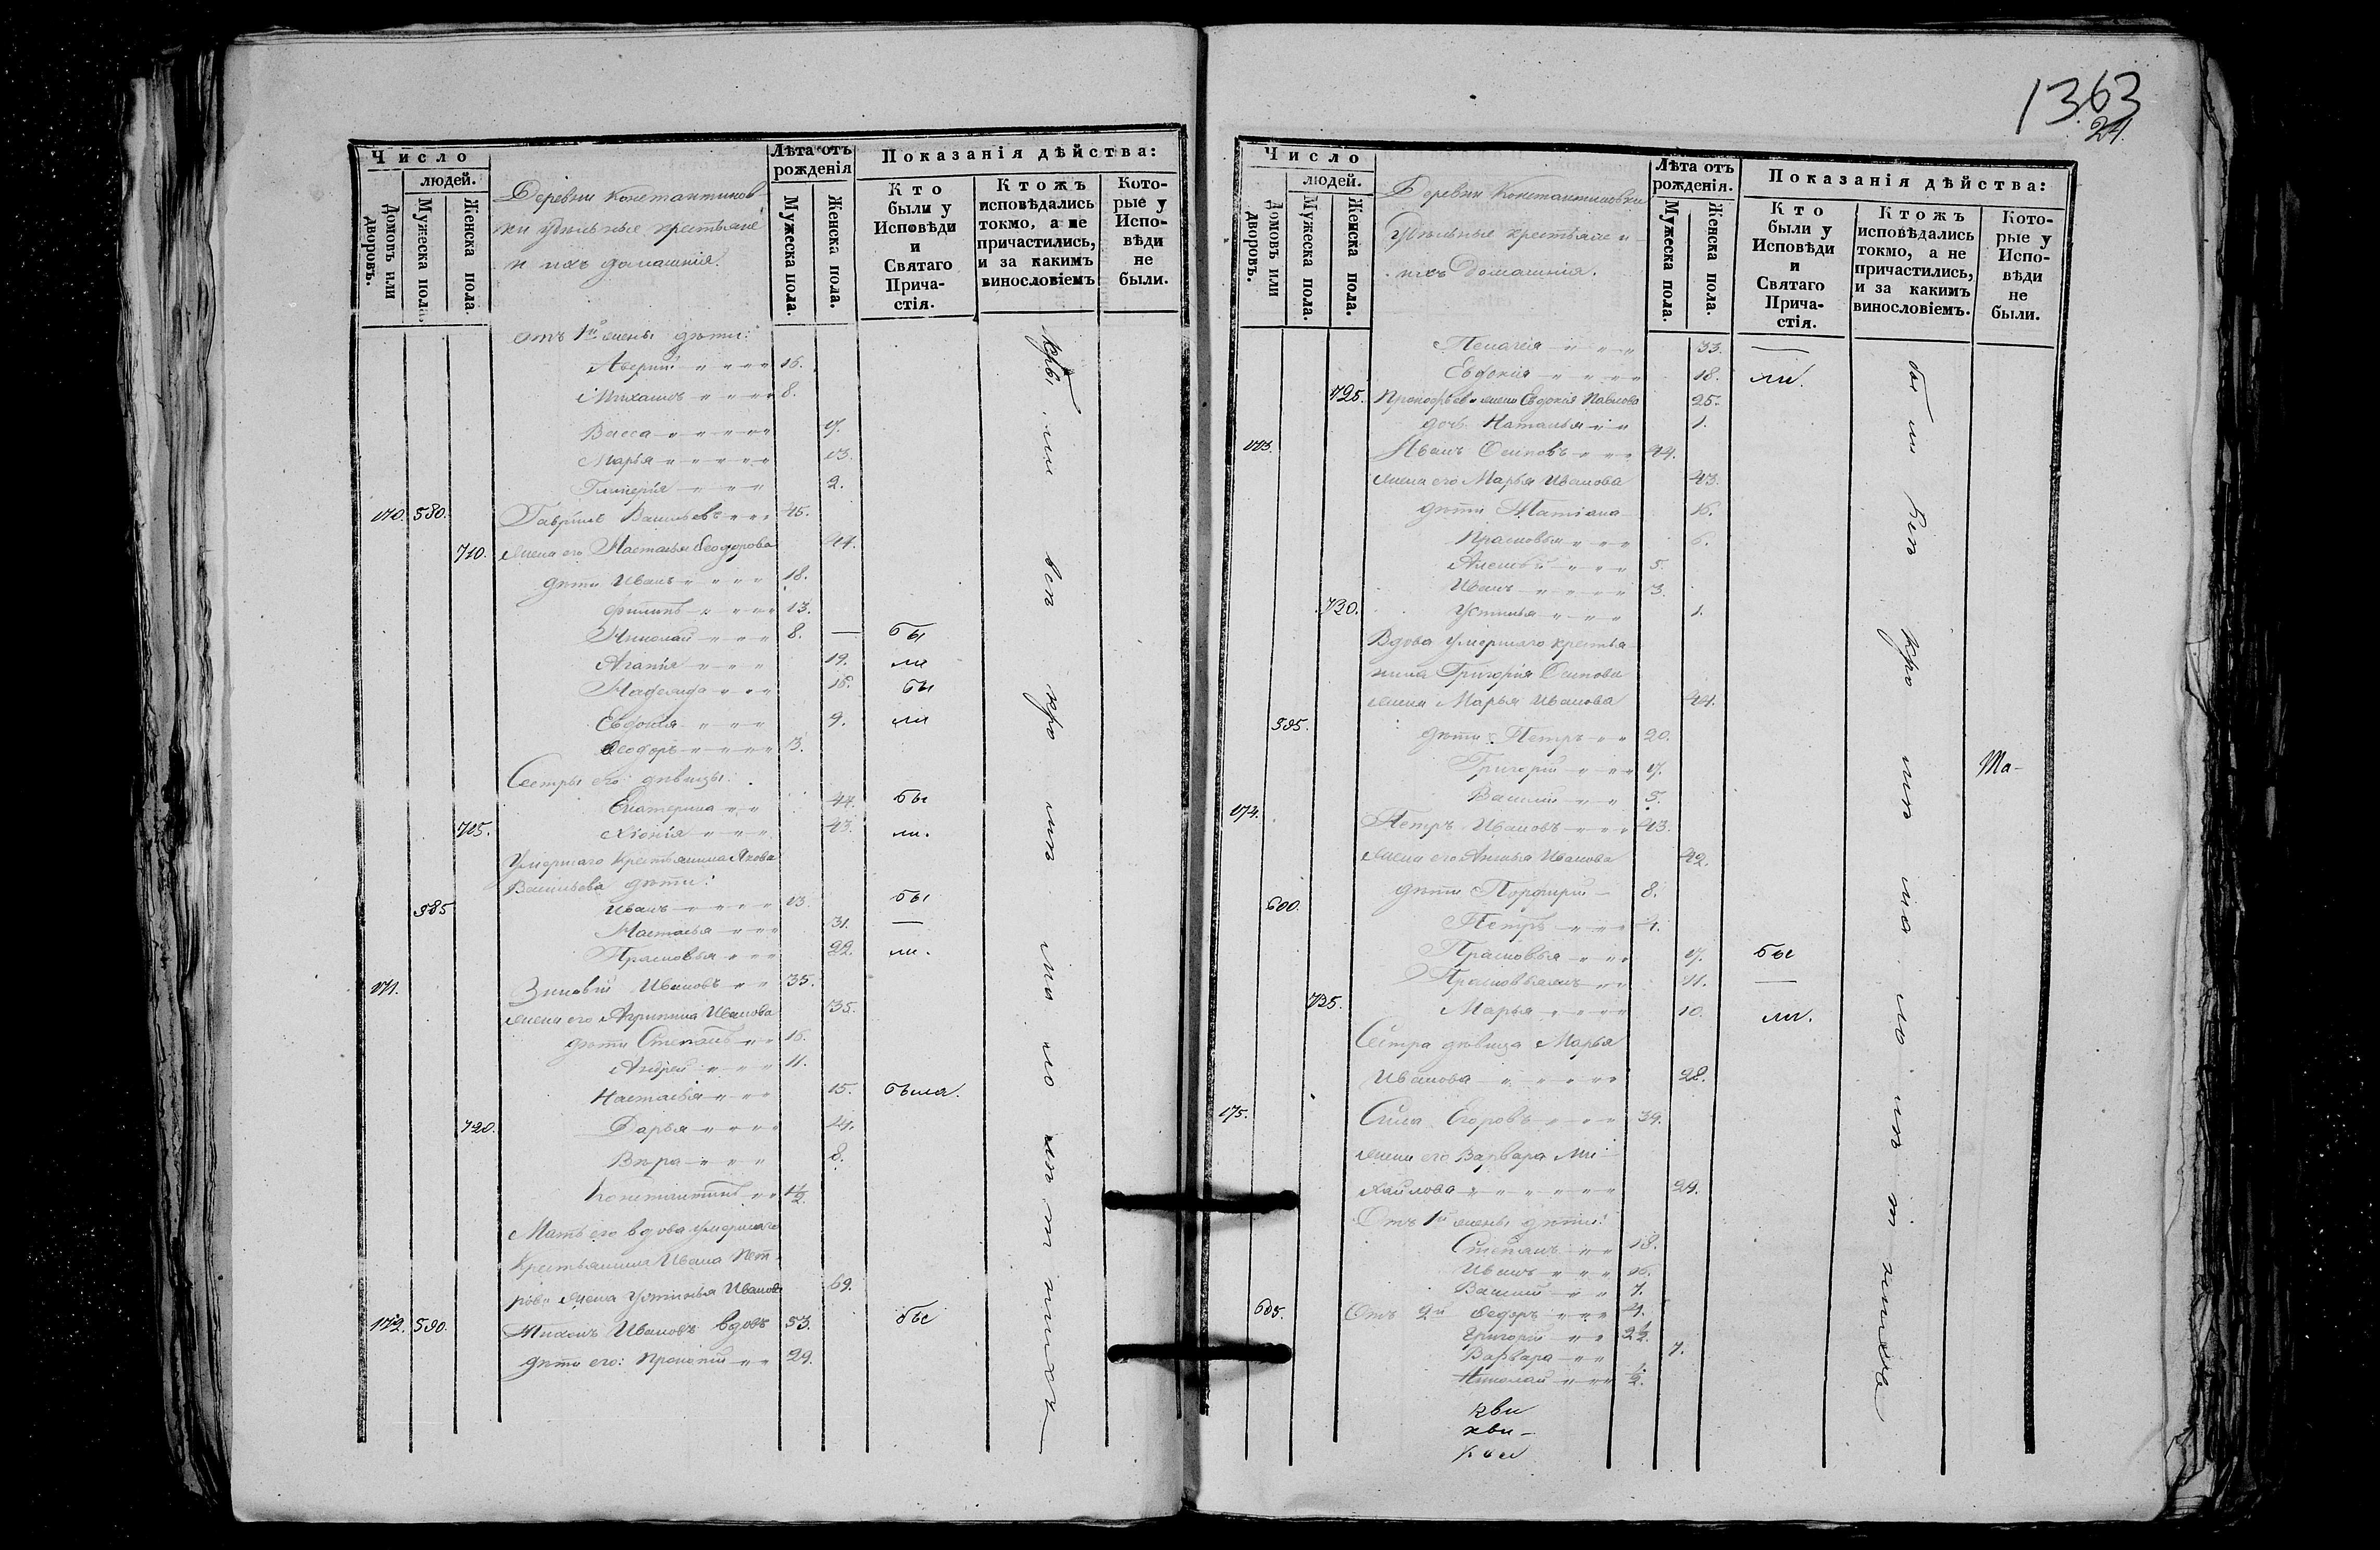 Число
людей.
Домовъ или дворовъ.
Мужеска пола.
Женска пола.
Деревни Константинов
ки удѣльные крестьяне
и ихъ домашнія.
Лѣта отъ рожденія
Мужеска пола.
Женска пола.
Показанія дѣйства:
Кто были у Исповѣди и Святаго Прича-стія.
Ктожъ исповѣдались токмо, а не причастились, и за какимъ винословіемъ
Кото-рые у Испо-вѣди не были.
отъ 1й жены дѣти:
Аверій 16.
Михаилъ 8.
Васса 17.
Марья 13.
Гликерія 2.
170. 580. Гавріилъ Васильевъ 45.
710. жена его Настасья Ѳеодорова 44.
дѣти Иванъ 18.
Филипъ 13.
Николай 8. — бы
Агапія 19. ли
16. бы
Евдокія 9. ли
Ѳеодоръ 3.
Сестры его дѣвицы:
Екатерина 44. бы
715. Хіонія 43. ли.
Умершаго крестьянина Якова
Васильева дѣти:
585 Иванъ 13. бы
Настасья 31. —
Прасковья 22. ли.
171. Зиновій Ивановъ 35.
жена его Агрипина Иванова 35.
дѣти Степанъ 16.
Андрей 11.
Настасья 15. была.
720. Дарья 14.
Вѣра 8.
Константинъ 1/2
Мать его вдова умершаго
крестьянина Ивана Пет-
ров. жена Устинья Иванов. 69.
172. 590. Тихонъ Ивановъ вдовъ 53. бы
дѣти его: Прокопій 29.
1363
24.
Число
людей.
Домовъ или дворовъ.
Мужеска пола.
Женска пола.
Деревни Константиновки
Удѣльные крестьяне и
ихъ Домашнія.
Лѣта отъ рожденія.
Мужеска пола.
Женска пола.
Показанія дѣйства:
Кто были у Исповѣди и Святаго Прича-стія.
Ктожъ исповѣдались токмо, а не причастились, и за какимъ винословіемъ.
Кото-рые у Испо-вѣди не были.
Пелагея 33. —
Евдокія 18. ли.
725. Прокофьев. жена Евдокія Павлова 25.
дочь Наталья 1.
173. Иванъ Осиповъ 44.
жена его Марья Иванова 43.
дѣти Татіана 16.
Прасковья 6.
Алексѣй 5.
Иванъ 3.
730. Устинья 1.
Вдова умершаго крестья
нина Григорія Осипова
жена Марья Иванова 44.
595. дѣти: Петръ 20.
Григорій 17. Та-
Василій 5.
174. Петръ Ивановъ 43.
жена его Анисья Иванова 42.
дѣти Порфирій 8.
600. Петръ 4.
Прасковья 17. бы
11. —
735. Марья 10. ли.
Сестра дѣвица Марья
Иванова 28.
175. Сила Егоровъ 39.
жена его Варвара Ми
хайлова 29.
Отъ 1й жены дѣти:
Степанъ 18.
Иванъ 16.
Василій 7.
605. Отъ 2й Ѳедоръ 4.
Григорій 2 1/2.
Варвара 7.
Николай 1/2.